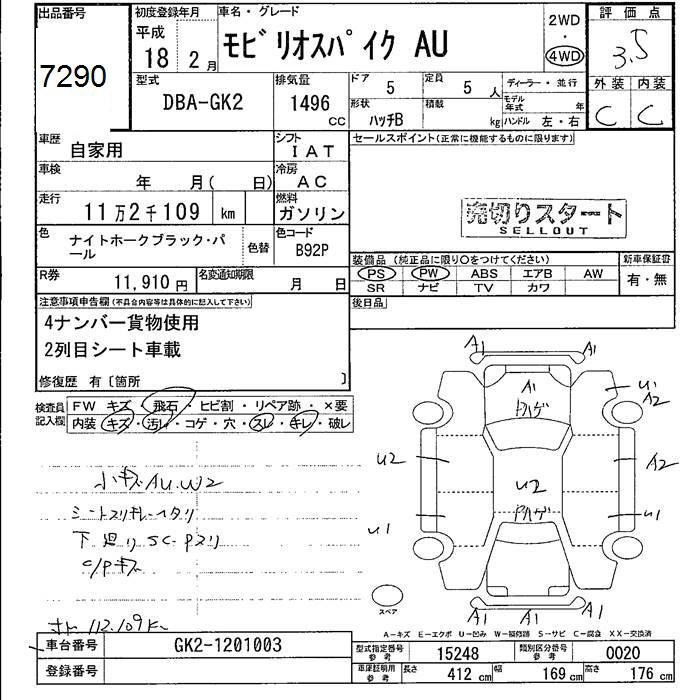 出品番号
7290
初度登録年月
平成
18年 2月
車名・グレード
モビリオスパイク AU
2WD
・
4WD
評価点
3.5
外装 内装
C C
型式
DBA-GK2
排気量
1496
CC
ドア
5
定員
5人
ディーラー・並行
形状
ハッチB
積載
kg
モデル年式
年
ハンドル 左・右
車歴
自家用
シフト
IAT
車検
年 月( 日)
冷房
AC
走行
11万2千109 km
燃料
ガソリン
色
ナイトホークブラック・パール
色替
色コード
B92P
R券
11,910円
名変通知期限
月 日
セールスポイント(正常に機能するものに限ります)
売切りスタート
SELLOUT
装備品(純正品に限り○をつけてください)
PS PW ABS エアB AW
SR ナビ TV カワ
新車保証書
有・無
後日品
注意事項申告欄(不具合内容等は具体的に記入して下さい)
4ナンバー貨物使用
2列目シート車載
修復歴 有〔箇所 〕
検査員記入欄
FW キズ・飛石・ヒビ割・リペア跡・×要
内装 キズ・汚れ・コゲ・穴・スレ・キレ・破レ
小キズAU.W2
シートスリキレ・ヘタリ
下廻りSC・Pスリ
C/Pキズ
112.109K
A1 A1
A1
トハゲ
U1
A2
U2
A2
U2
Pハゲ
U1
U1
A1 A1 A1
スペア
A-キズ E-エクボ U-凹み W-補修跡 S-サビ C-腐食 XX-交換済
車台番号
GK2-1201003
登録番号
型式指定番号
参考
15248
類別区分番号
参考
0020
車庫証明用
参考
長さ
412 cm
幅
169 cm
高さ
176 cm